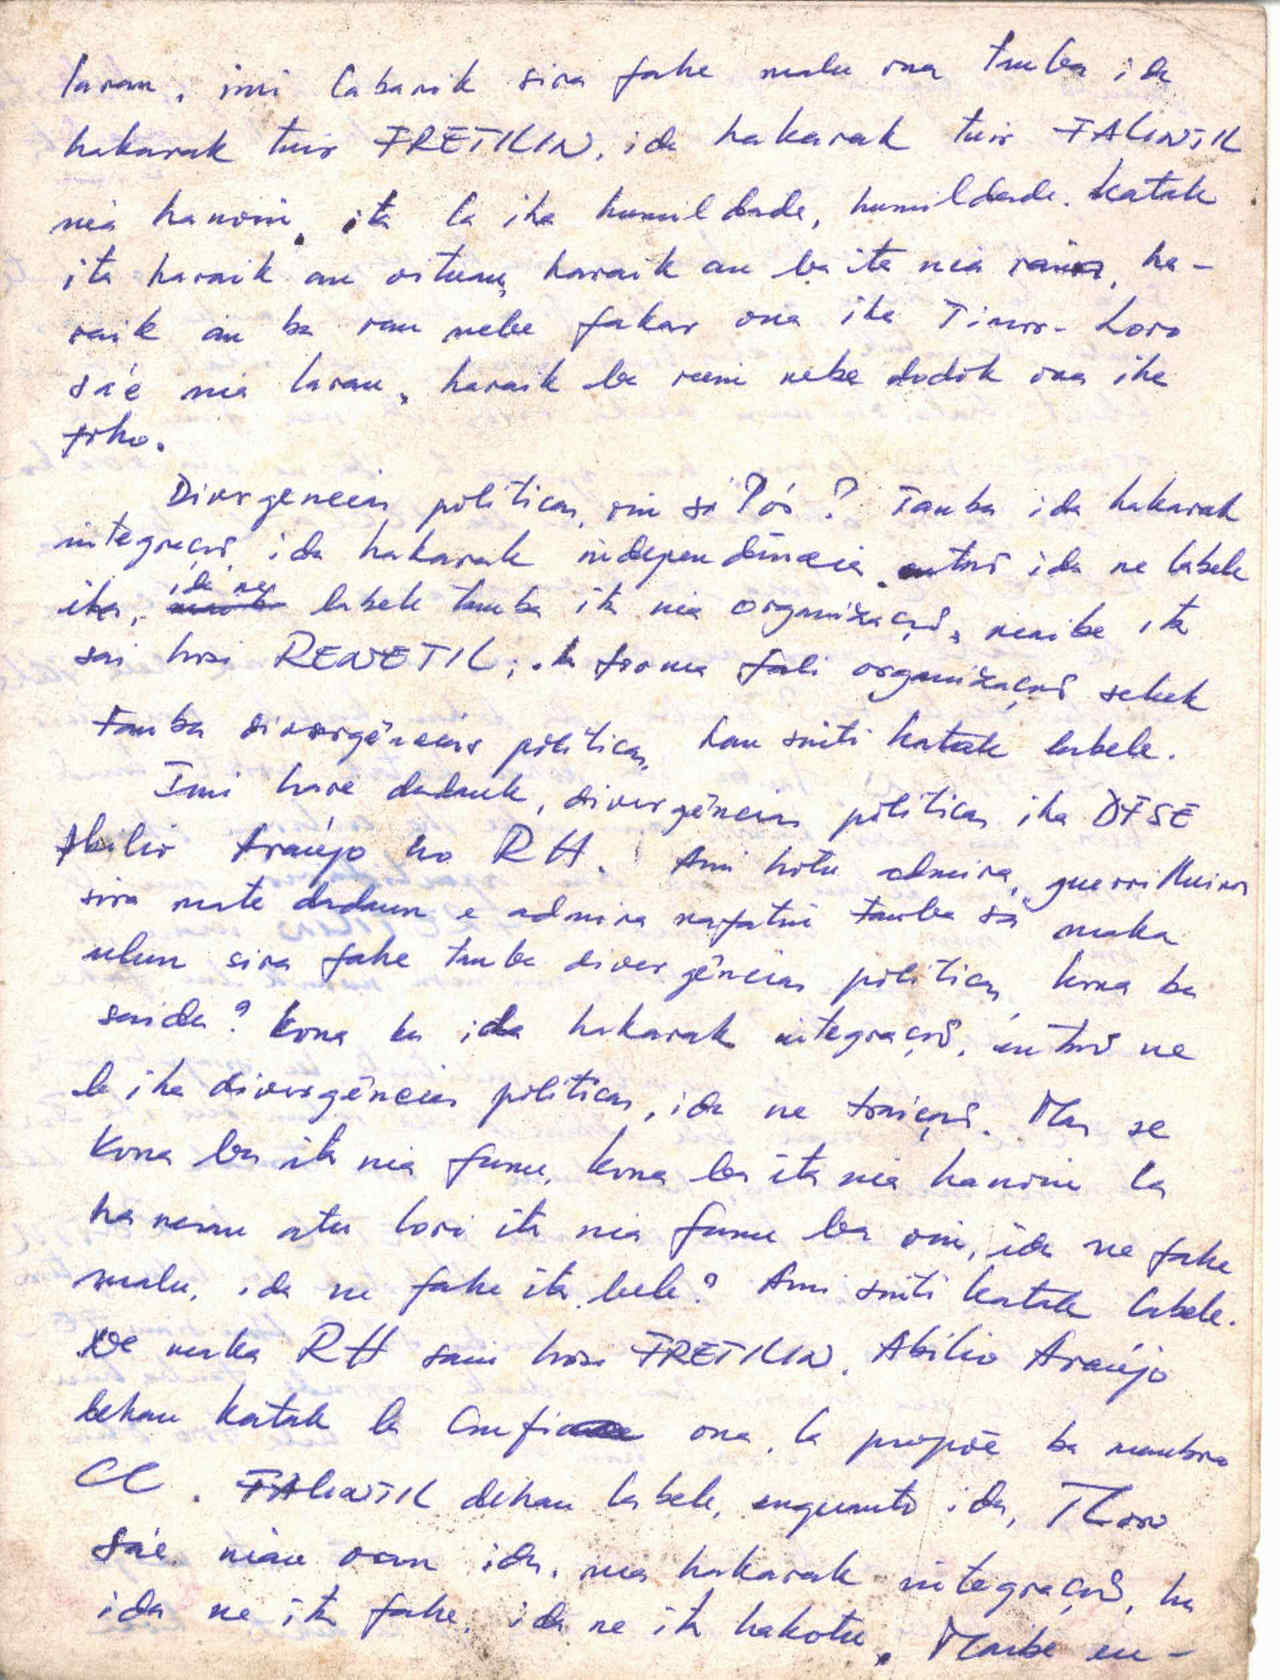 laran, imi labarik sira fahe malu ona tamba ida
hakarak tuir FRETILIN, ida hakarak tuir FALINTIL
nia hanoin, ita la iha humildade, humildade. Katak
ita haraik an oituan, haraik an ba ita nia rain, ha-
raik an ba ran nebe fakar ona iha Timor-Loro
Sá'e nia laran, haraik ba ruin nebe dodok ona iha
foho.
Divergências políticas, oin sá lós? Tamba ida hakarak
integração, ida hakarak independência, então ida ne labele
iha, ida ne labele tamba ita nia organização, maibe ita
sai hosi RENETIL, ita forma fali organização seluk
tamba divergências políticas, hau sinti katak labele.
Imi hare dadauk, divergências políticas iha DFSE
Abílio Araújo ho RH. Ami hotu admira, guerrilheiros
sira mate dadaun e admira nafatin tamba sá maka
ulun sira fahe tamba divergências políticas, kona ba
saida? Kona ba ida hakarak integração, então ne
la iha divergências políticas, ida ne traição. Mas se
kona ba ita nia funu, kona ba ita nia hanoin la
hanesan atu lori ita nia funu ba oin, ida ne fahe
malu, ida ne fahe ita bele? Ami sinti katak labele.
Ne maka RH sai hosi FRETILIN. Abílio Araújo
dehan katak la confia ona, la propõe ba membro
CC. FALINTIL dehan labele, enquanto ida, TLoro
Sáe nian oan ida, nia hakarak integração, ha
ida ne ita fahe, ida ne ita hakotu. Maibe en-